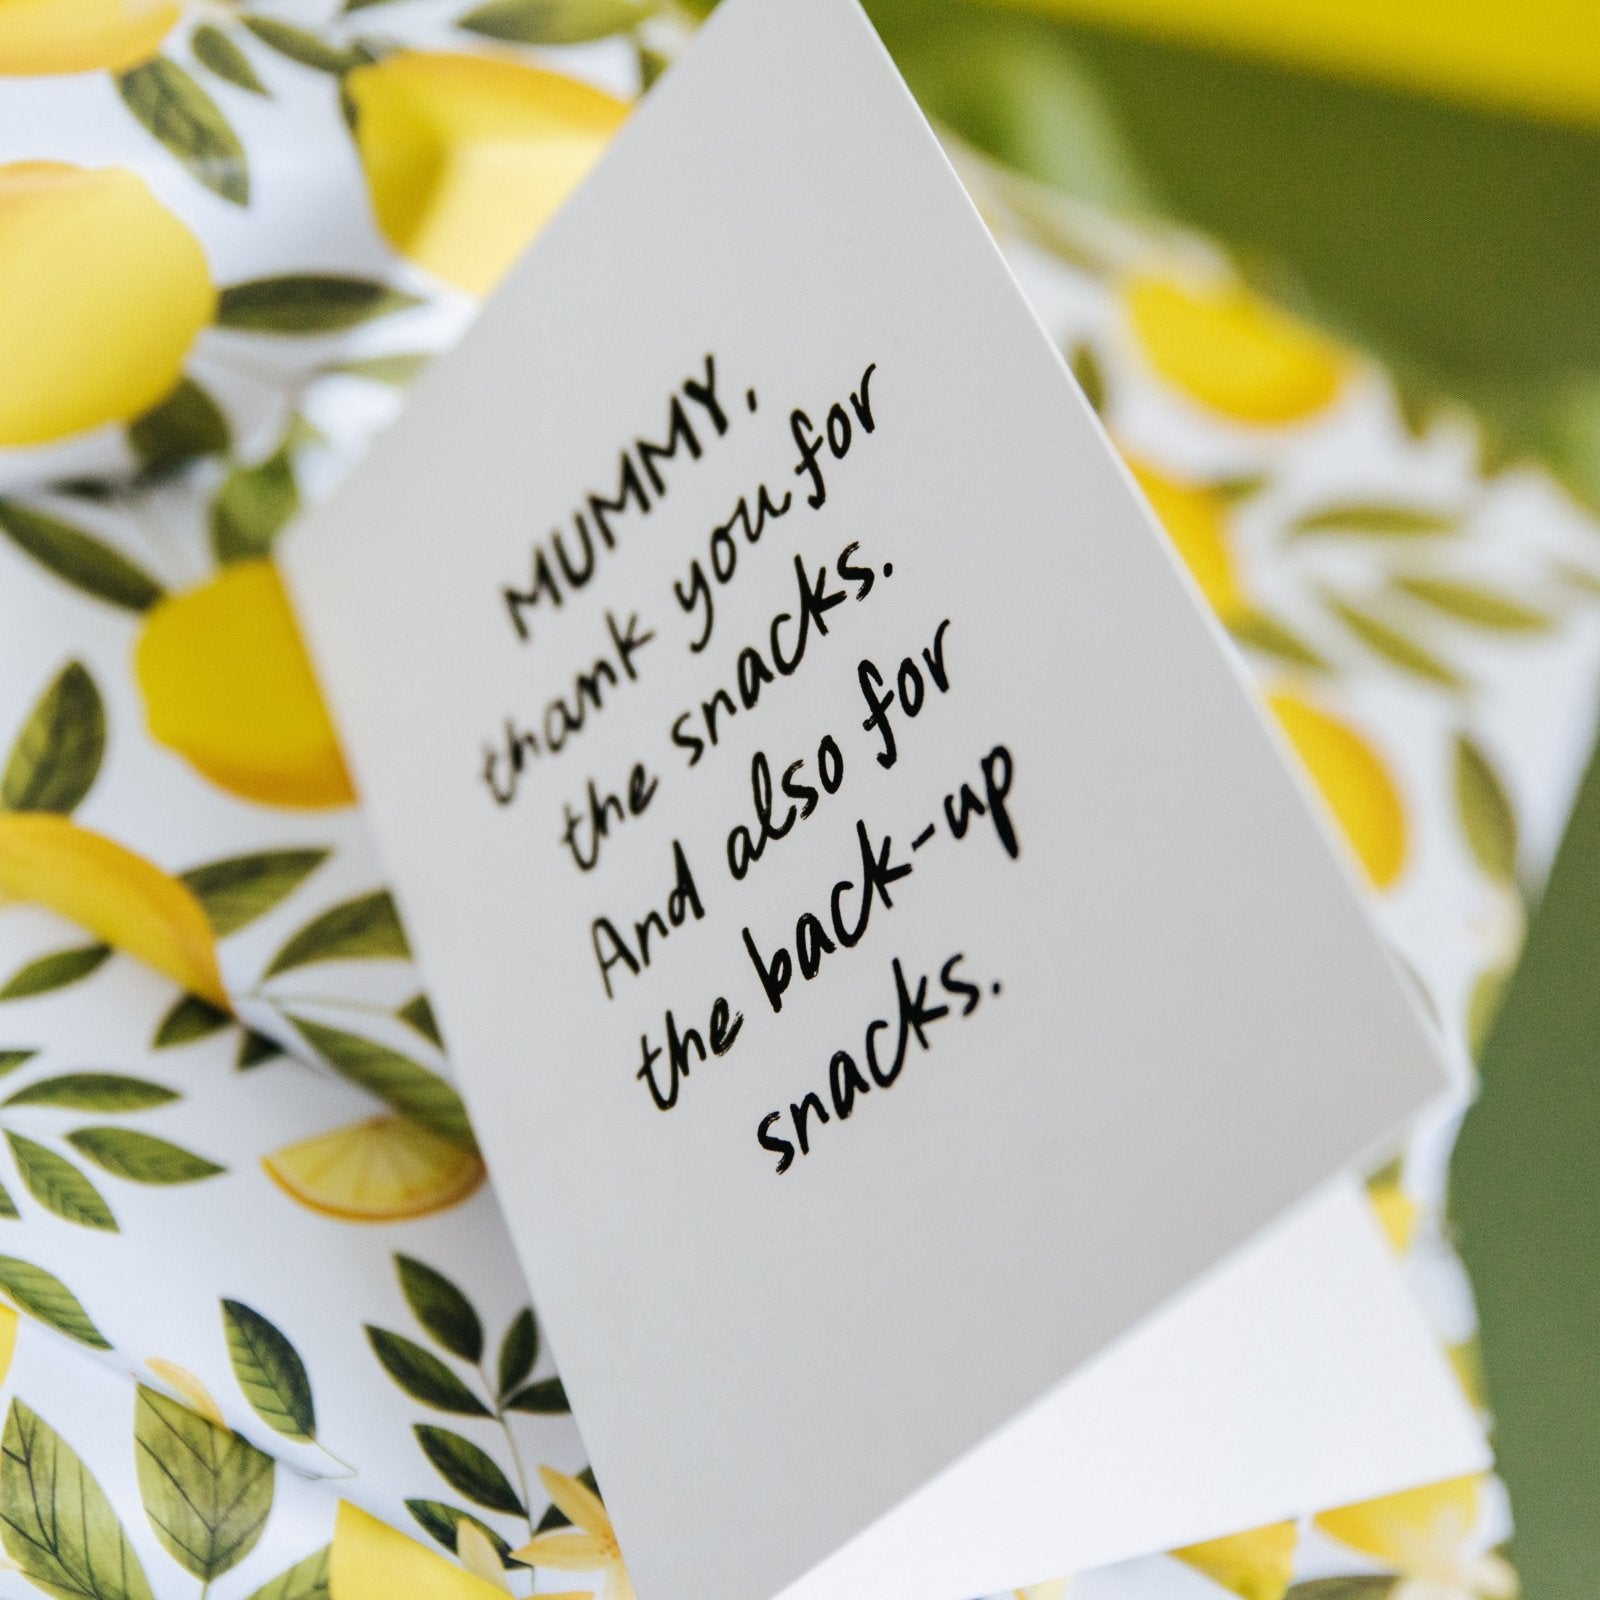 MUMMY,
thank you for
the snacks.
And also for
the back-up
snacks.